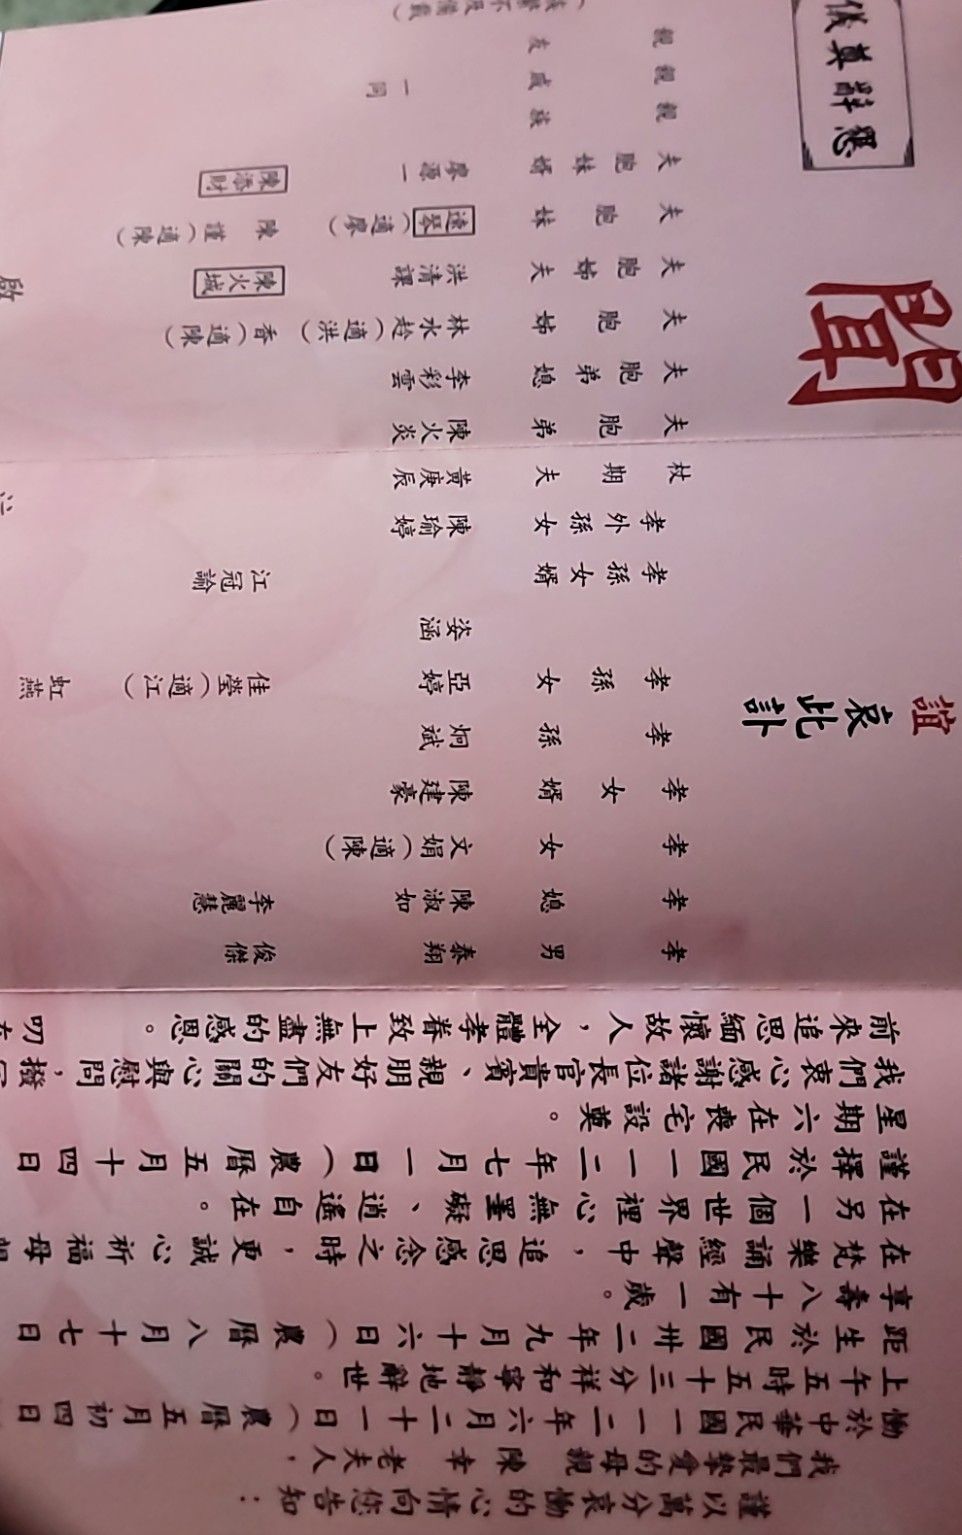 謹以萬分哀慟的心情向您告知：
我們最摯愛的母親 陳 幸 老夫人，
慟於中華民國一一二年六月二十一日（農曆五月初四日
上午五時五十三分祥和寧靜地辭世。
距生於民國卅二年九月十六日（農曆八月十七日
享壽八十有一歲。
在梵樂誦經聲中，追思感念之時，更誠心祈福母親
在另一個世界裡心無罣礙、逍遙自在。
謹擇於民國一一二年七月一日（農曆五月十四日
星期六在喪宅設奠。
我們衷心感謝諸位長官貴賓、親朋好友們的關心與慰問，撥冗
前來追思緬懷故人，全體孝眷致上無盡的感恩。 叨在
誼
哀此訃
聞
懇辭奠儀
孝男 泰翔 俊傑
孝媳 陳淑如 李麗慧
孝女 文娟（適陳）
孝女婿 陳建豪
孝孫 炯斌
孝孫女 亞婷 佳瑩（適江） 虹燕
姿涵
孝孫女婿 江冠諭
孝外孫女 陳瑜婷
杖期夫 黃庚辰
夫胞弟 陳火炎
夫胞弟媳 李彩雲
夫胞姊 林水趁（適洪） 香（適陳）
夫胞姊夫 洪清課 陳火城
夫胞妹 速琴（適廖） 陳謹（適陳）
夫胞妹婿 廖源一 陳添財
親族
親戚 一同
親友
（族繁不及備載）
啟